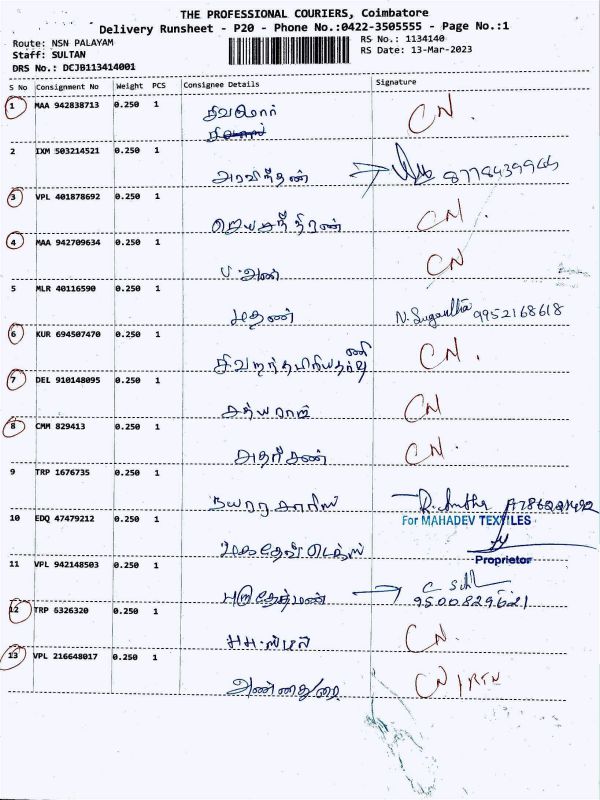 THE PROFESSIONAL COURIERS, Coimbatore
Delivery Runsheet - P20 - Phone No.:0422-3505555 - Page No.:1
Route: NSN PALAYAM
RS No.: 1134140
Staff: SULTAN
RS Date: 13-Mar-2023
DRS No.: DCJB113414001
S No Consignment No Weight PCS Consignee Details Signature
1 MAA 942838713 0.250 1 CN.
சிவகுமார்
2 IXM 503214521 0.250 1
அரவிந்தன் 8778439945
3 VPL 401878692 0.250 1 CN.
ஜெயசந்திரன்
4 MAA 942709634 0.250 1 CN
5 MLR 40116590 0.250 1
மதன் N. Sugantha 9952168618
6 KUR 694507470 0.250 1 CN.
7 DEL 910148095 0.250 1
சத்யராஜ் CN
8 CMM 829413 0.250 1 CN.
9 TRP 1676735 0.250 1
10 EDQ 47479212 0.250 1 For MAHADEV TEXTILES
Proprietor
11 VPL 942148503 0.250 1
9500829621
12 TRP 6326320 0.250 1 CN.
13 VPL 216648017 0.250 1 CN/RTN
அண்ணதுரை